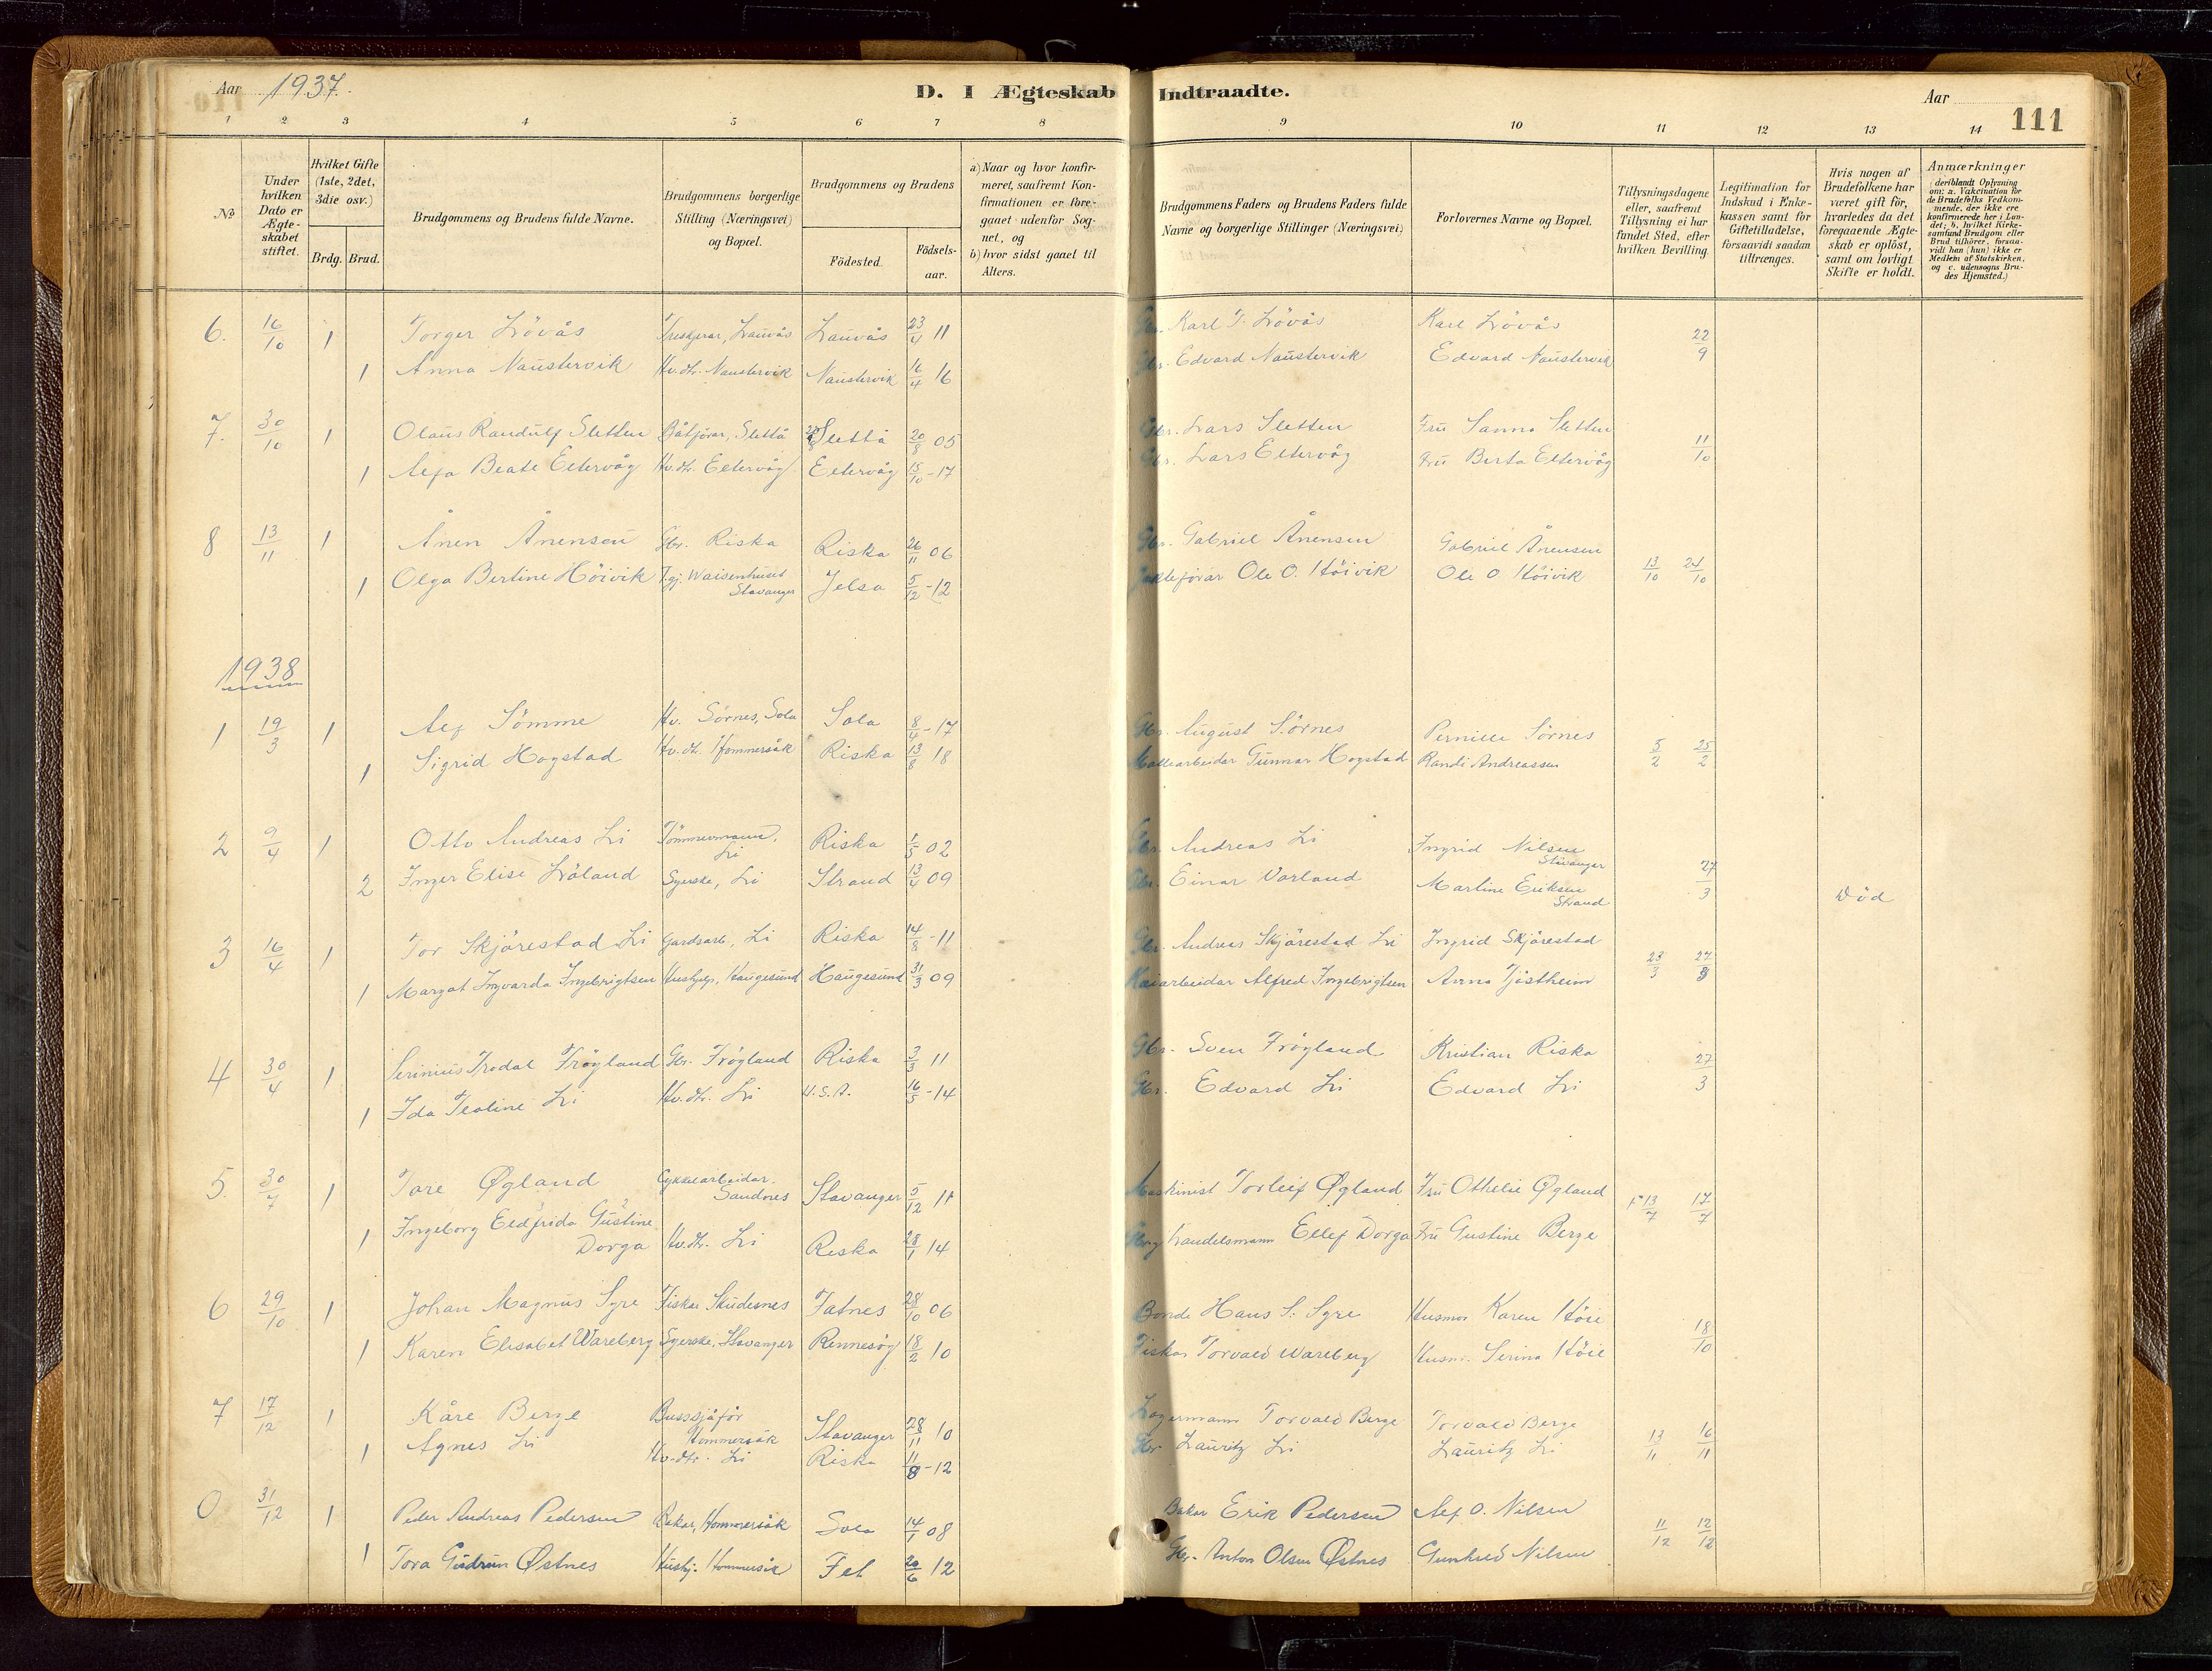 Aar 1937.
D. I Ægteskab Indtraadte.
Aar
111
1 2 3 4 5 6 7 8 9 10 11 12 13 14
No
Under hvilken Dato er Ægte-skabet stiftet.
Hvilket Gifte (1ste, 2det, 3die osv.)
Brdg. Brud.
Brudgommens og Brudens fulde Navne.
Brudgommens borgerlige Stilling (Næringsvei) og Bopæl.
Brudgommens og Brudens
Födested.
Födsels-aar.
a) Naar og hvor konfir-meret, saafremt Kon-firmationen er fore-gaaet udenfor Sog-net, og
b) hvor sidst gaaet til Alters.
Brudgommens Faders og Brudens Faders fulde Navne og borgerlige Stillinger (Næringsvei)
Forlovernes Navne og Bopæl.
Tillysningsdagene eller, saafremt Tillysning ei har fundet Sted, efter hvilken Bevilling.
Legitimation for Indskud i Enke-kassen samt for Giftetilladelse, forsaavidt saadan tiltrænges.
Hvis nogen af Brudefolkene har været gift før, hvorledes da det foregaaende Ægte-skab er oplöst, samt om lovligt Skifte er holdt.
Anmærkninger (deriblandt Oplysning om: a. Vakcination for de Brudefolks Vedkom-mende, der ikke ere konfirmerede her i Lan-det; b. hvilket Kirke-samfund Brudgom eller Brud tilhörer, forsaa-vidt han (hun) ikke er Medlem af Statskirken, og c. udensogns Bru-des Hjemsted.)
6. 16/10 1 Torger Lövås Lauvås Lauvås 23/4 11 Gbr. Karl T. Lövås Karl Lövås 22/9
1 Anna Naustervik Hv.dtr. Naustervik Naustervik 16/4 16 Gbr. Edvard Naustervik Edvard Naustervik
7. 30/10 1 Olaus Randulf Sletten Båtförar, Slettå Slettå 20/8 05 Gbr. Lars Sletten Fru Sanna Sletten 11/10
1 Alfa Beate Eltervåg Hv.dtr. Eltervåg Eltervåg 15/10-17 Gbr. Lars Eltervåg Fru Berta Eltervåg
8 13/11 1 Ånen Ånensen Gbr. Riska Riska 26/11 06 Gbr. Gabriel Ånensen Gabriel Ånensen 13/10 24/10
1 Olga Bertine Höivik T.gj. Waisenhuset Stavanger Jelsa 5/12-12 Jakteförar Ole O. Höivik Ole O Höivik
1938
1 19/3 1 Alf Sömme Hv. Sörnes, Sola Sola 8/4-17 Gbr. August Sörnes Pernille Sörnes 5/2 25/2
1 Sigrid Hogstad Hv.dtr. Hommersåk Riska 13/8 18 Gunnar Hogstad Randi Andreassen
2 9/4 1 Otto Andreas Li Tömmermann, Li Riska 1/5 02 Gbr. Andreas Li Ingrid Nilsen Stavanger 27/3
2 Inger Elise Löland Syerske, Li Strand 13/4 09 Gbr. Einar Vorland Martine Eriksen Strand Död
3 16/4 1 Tor Skjörestad Li Gardsarb, Li Riska 14/8-11 Gbr. Andreas Skjörestad Li Ingrid Skjörestad 23/3 27/3
1 Margot Ingvarda Ingebrigtsen Hushjelp, Haugesund Haugesund 31/3 09 Kaiarbeidar Alfred Ingebrigtsen Anna Tjöstheim
4 30/4 1 Serinius Trodal Frögland Gbr. Frögland Riska 3/3 11 Gbr. Sven Frögland Kristian Riska 27/3
1 Ida Teoline Li Hv.dtr. Li U.S.A. 16/5-14 Gbr. Edvard Li Edvard Li
5. 30/7 1 Tore Øgland Cykkelarbeidar. Sandnes Stavanger 5/12 11 Maskinist Torleif Øgland Fru Othelie Øgland 13/7 17/7
1 Ingeborg Eldfrida Gustine Dorga Hv.dtr. Li Riska 28/1 14 Handelsmann Ellef Dorga Fru Gustine Berge
6 29/10 1 Johan Magnus Syre Fiskar Skudesnes Falnes 28/10 06 Bonde Hans S. Syre Husmor Karen Höie 18/10
1 Karen Elisabet Wareberg Syerske, Stavanger Rennesöy 18/2 10 Fiskar Torvald Wareberg Husm. Serina Höie
7 17/12 1 Kåre Berge Bussjåför Hommersåk Stavanger 28/11 10 Lagermann Torvald Berge Torvald Berge 13/11 16/11
1 Agnes Li Hv.dtr. Li Riska 11/8-12 Gbr Lauritz Li Lauritz Li
0 31/12 1 Peder Andreas Pedersen Bakar, Hommersåk Sola 14/1 08 Bakar Erik Pedersen Alf O. Nilsen 11/12 12/12
1 Tora Gudrun Østnes Hushj. Hommersåk Fet 20/6 12 Gbr. Anton Olsen Østnes Gunhild Nilsen